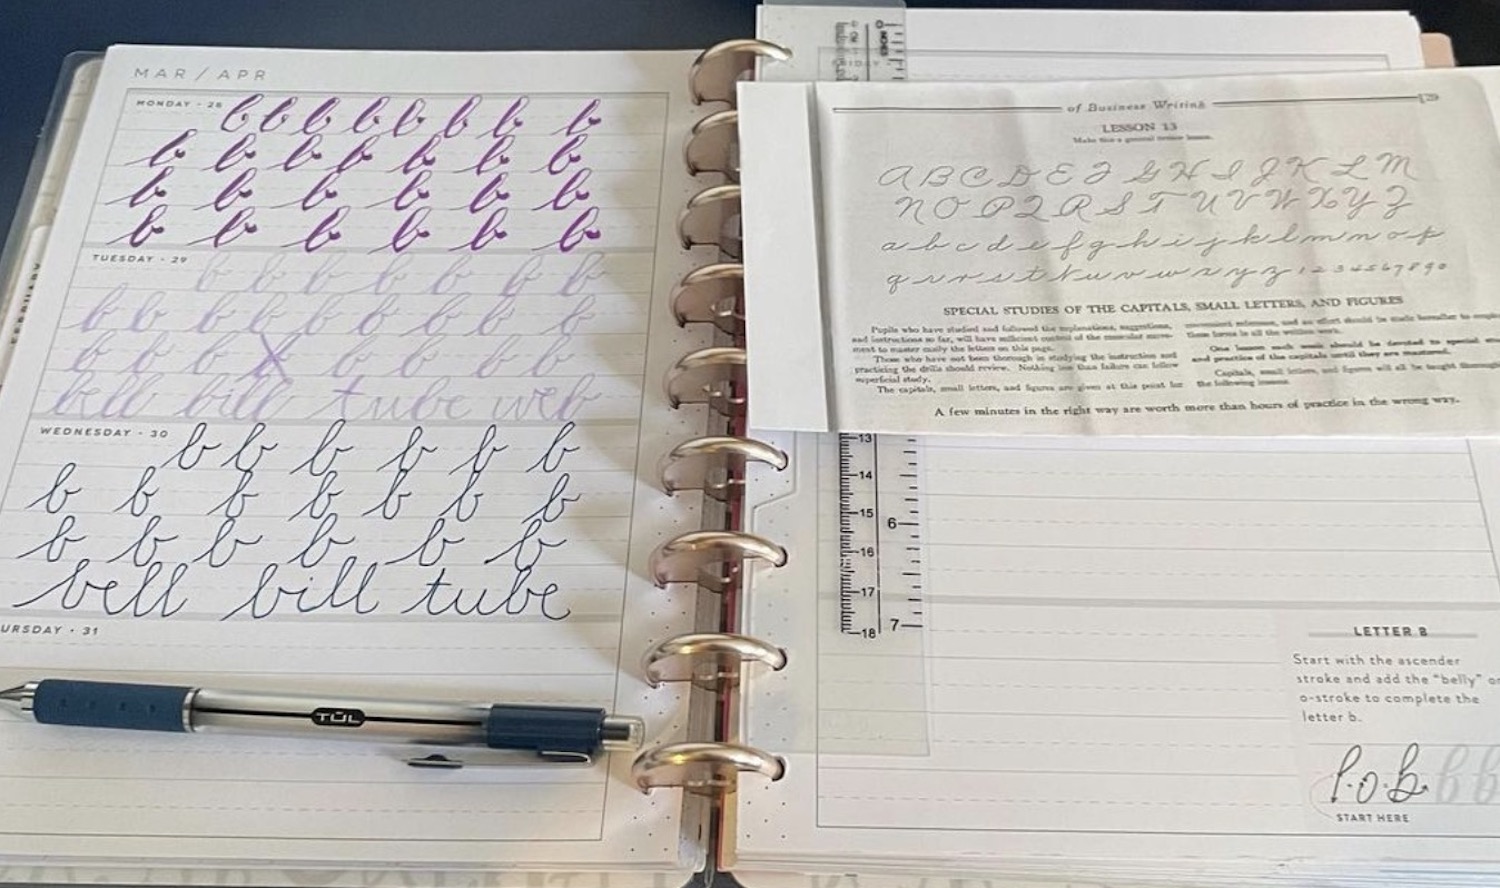 MAR / APR
MONDAY · 28
b b b b b b b b
b b b b b b b
b b b b b b
b b b b b b
TUESDAY · 29
b b b b b b
b b b b b b b b
b b b b b b b
bell bill tube web
WEDNESDAY · 30
b b b b b b
b b b b b b b
b b b b b b
bell bill tube
URSDAY · 31
TUL
of Business Writing
LESSON 13
Make this a general review lesson.
A B C D E F G H I J K L M
N O P Q R S T U V W X Y Z
a b c d e f g h i j k l m n o p
q r r s t t u v w x y z 1 2 3 4 5 6 7 8 9 0
SPECIAL STUDIES OF THE CAPITALS, SMALL LETTERS, AND FIGURES
Pupils who have studied and followed the explanations, suggestions,
and instructions so far, will have sufficient control of the muscular move-
ment to master easily the letters on this page.
Those who have not been thorough in studying the instruction and
practicing the drills should review. Nothing less than failure can follow
superficial study.
The capitals, small letters, and figures are given at this point for
convenient reference, and an effort should be made hereafter to
them forms in all the written work.
One lesson each week should be devoted to special
and practice of the capitals until they are mastered.
Capitals, small letters, and figures will all be taught
the following lessons.
A few minutes in the right way are worth more than hours of practice in the wrong way.
13
14
15
16
17
18
6
7
LETTER B
Start with the ascender
stroke and add the "belly" or
o-stroke to complete the
letter b.
l · o · b b b
START HERE